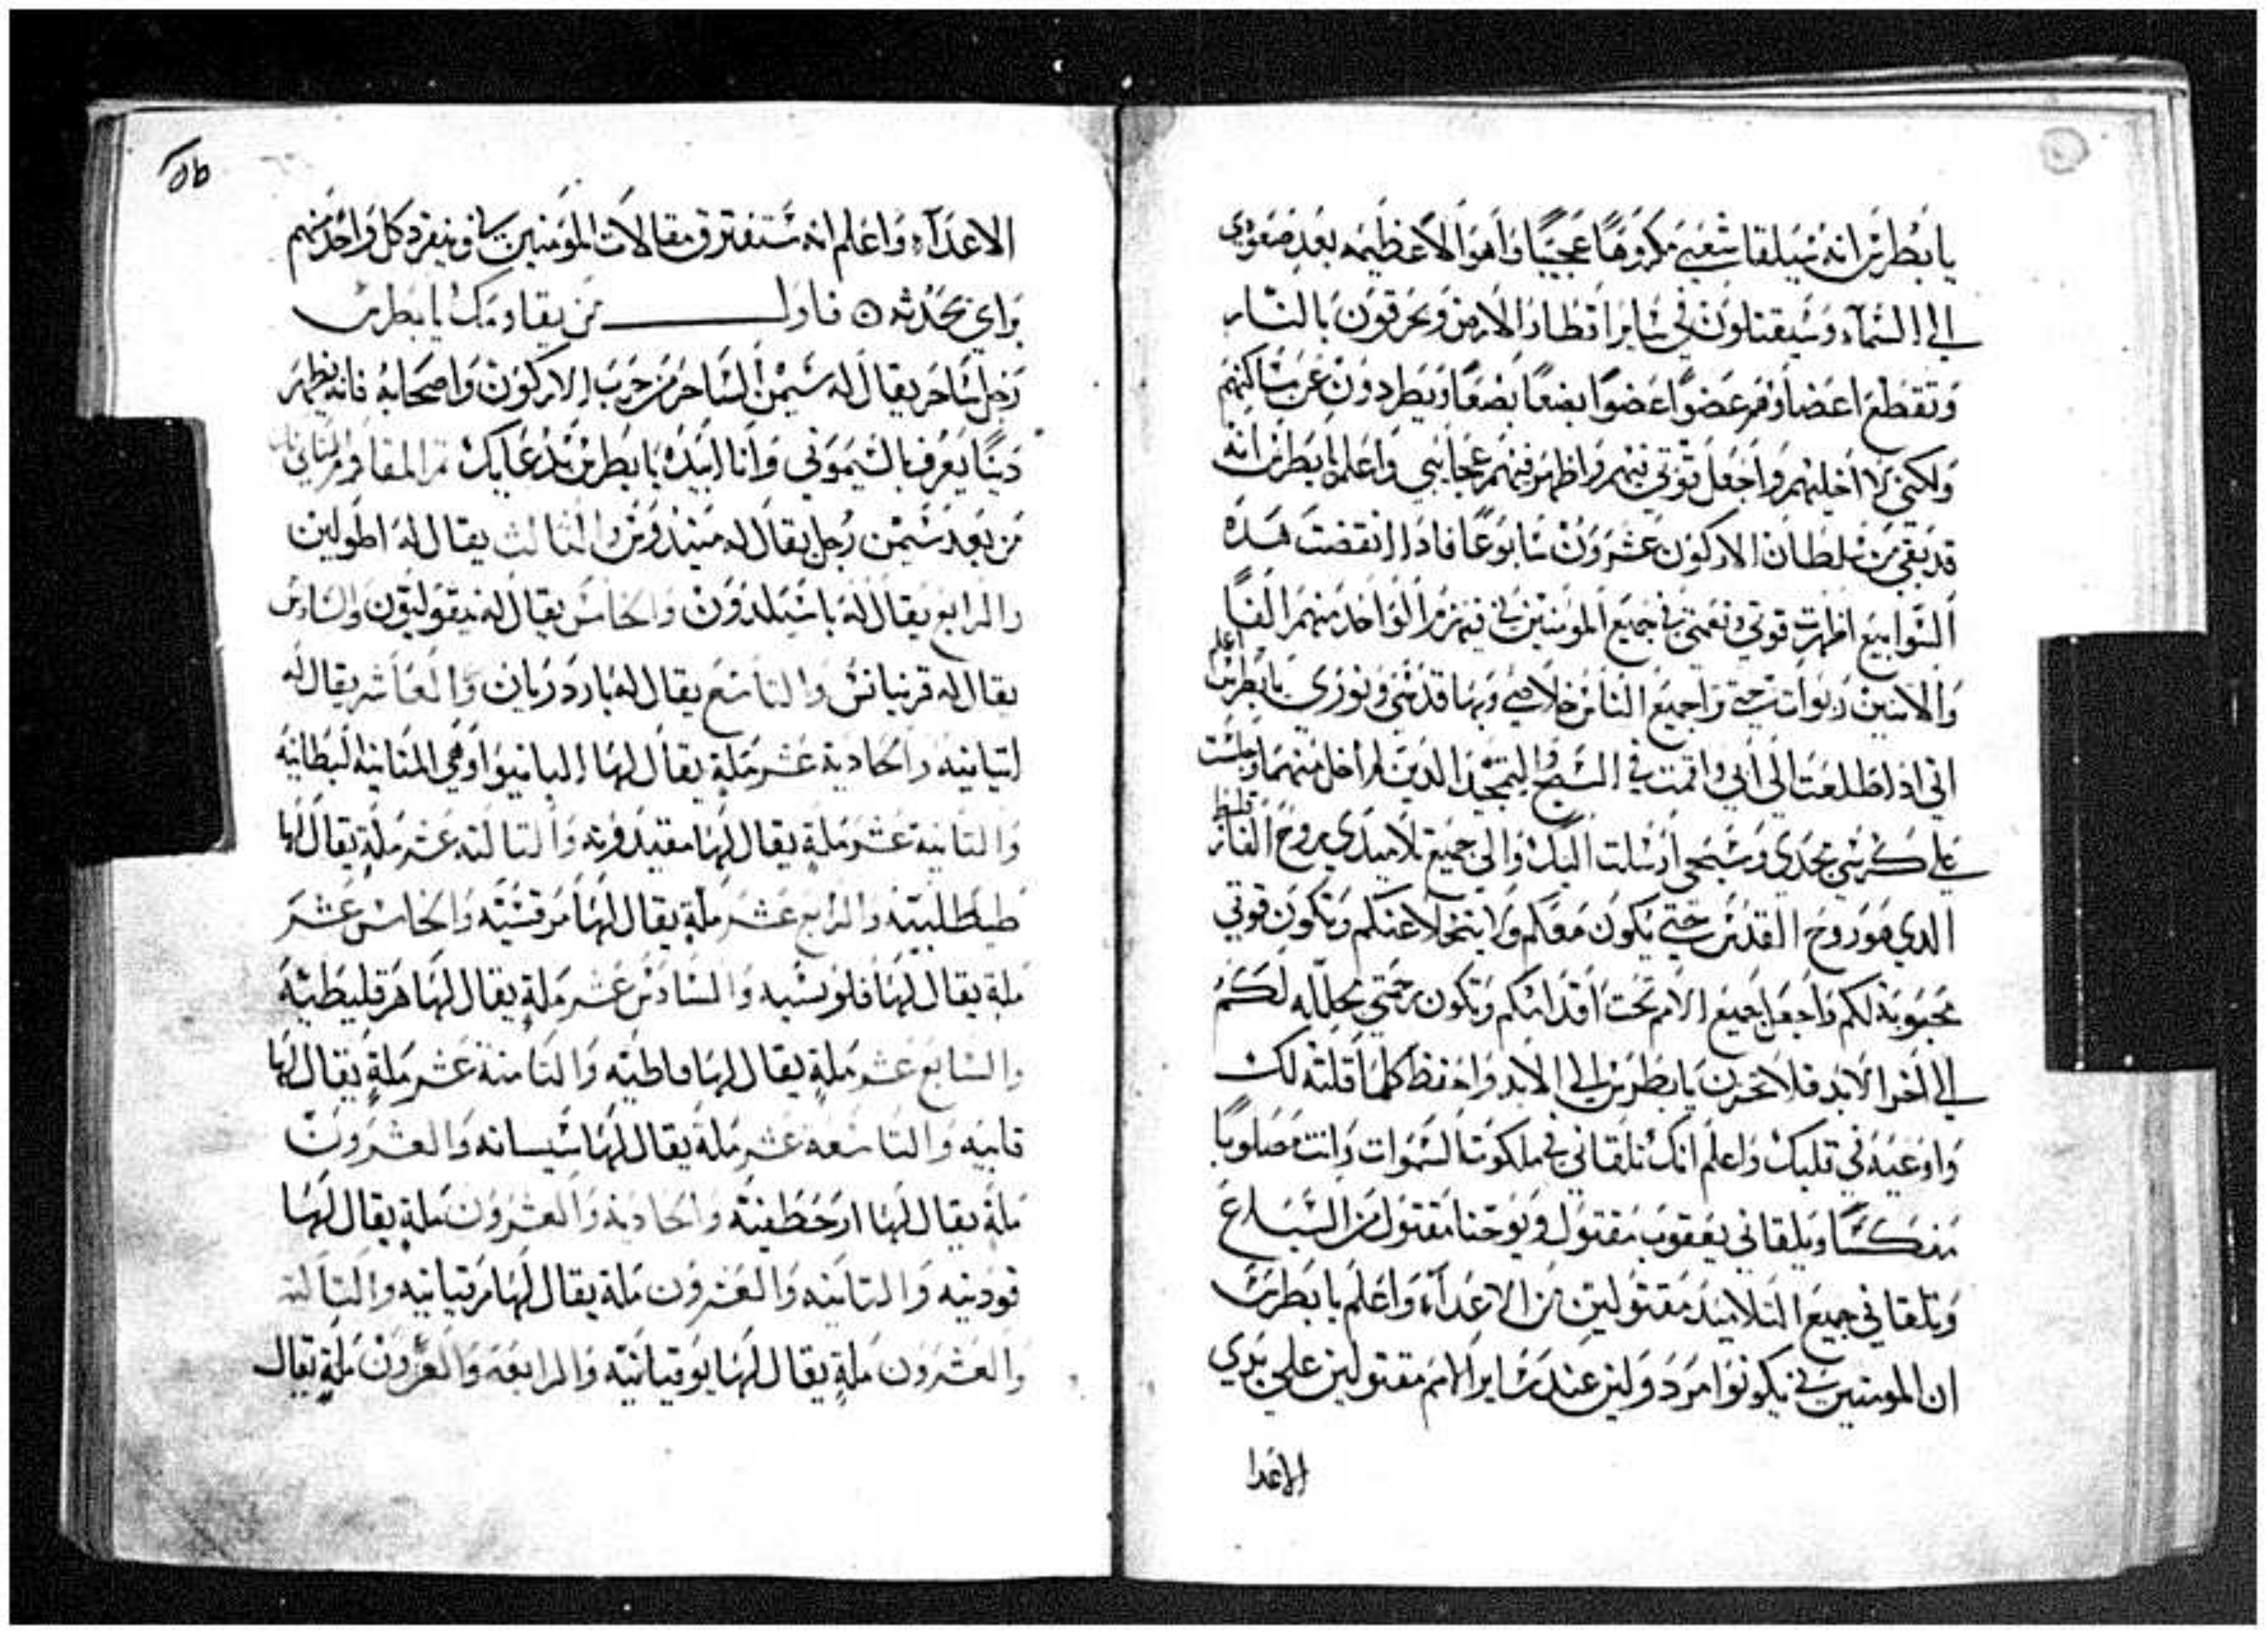 يا بطرس انه سيلقا شعبي مكروها عجيبا واهوالا عظيمه بعد صعودي
الي السماء وسيقتلون في ساير اقطار الارض ويحرقون بالنار
وتقطع اعضاوهم عضوا عضوا بضعا بضعا ويطردون عن مساكنهم
ولكنني لا اخليهم واجعل قوتي فيهم واظهر فيهم عجايبي واعلم يا بطرس انه
قد بقي من سلطان الاركون عشرون سابوعا فاذا انقضت هذه
السوابيع اظهرت قوتي ونعمتي في جميع المومنين بي فيهزم الواحد منهم الفا
والاتنين ربوات حتي جميع الناس خلاصي وبها قدسي ونوري اعلم يا بطرس
اني اذا طلعت الي ابي واقمت في السبح والتمجيد الذين لم اخل منهما وجلست
علي كرسي مجدي وسبحي ارسلت اليك والي جميع تلاميدي بروح الفارقليط
الدي هو روح القدس حتي يكون معكم ولا يتخلا عنكم وتكون قوتي
محبوبة لكم واجعل جميع الامم تحت اقدامكم وتكون رحمتي مجلله لكم
الي اخر الابد فلا تحزن يا بطرس الي الابد واحفظ كلما قلته لك
واوعيه في قلبك واعلم انك تلقاني في ملكوت السموات وانت مصلوبا
منكسا ويلقاني يعقوب مقتول ويوحنا مقتول من السباع
وتلقاني جميع التلاميد مقتولين من الاعداء واعلم يا بطرس
ان المومنين بي يكونوا مردولين عند ساير الامم مقتولين علي يدي
الاعدا
الاعداء واعلم انه ستفترق مقالات المومنين بي وينفرد كل واحد منهم
براي يحدثه ۞ فاول من يقاومك يا بطرس
رجل ساحر يقال له سيمن الساحر من حزب الاركون واصحابه فانه يظهر
دينا يعرف بالسيموني وانا ابيده يا بطرس بدعايك ثم المقاوم الثاني
من بعد سيمن رجل يقال له منيندروس والثالث يقال له اطولين
والرابع يقال له باسيليدون والخامس يقال له نيقوليقون والسادس
يقال له قرنيانس والتاسع يقال له بارديان والعاشر يقال له
اتيانيه والحادية عشر ملة يقال لها البانيوا وهي المنانيه البطانيه
والتانية عشر ملة يقال لها مقيدونه والتالته عشر ملة يقال لها
طيطلبيته والرابع عشر ملة يقال لها مرقسيته والخامس عشر
ملة يقال لها فلونسيه والسادس عشر ملة يقال لها هرقليطيه
والسابع عشر ملة يقال لها فاطيه والتامنة عشر ملة يقال لها
قابيه والتاسعة عشر ملة يقال لها سيسانه والعشرون
ملة يقال لها ارخطفنيه والحاديه والعشرون ملة يقال لها
قودنيه والتانيه والعشرون ملة يقال لها مرقيانيه والتالته
والعشرون ملة يقال لها يوقيانيه والرابعه والعشرون ملة يقال